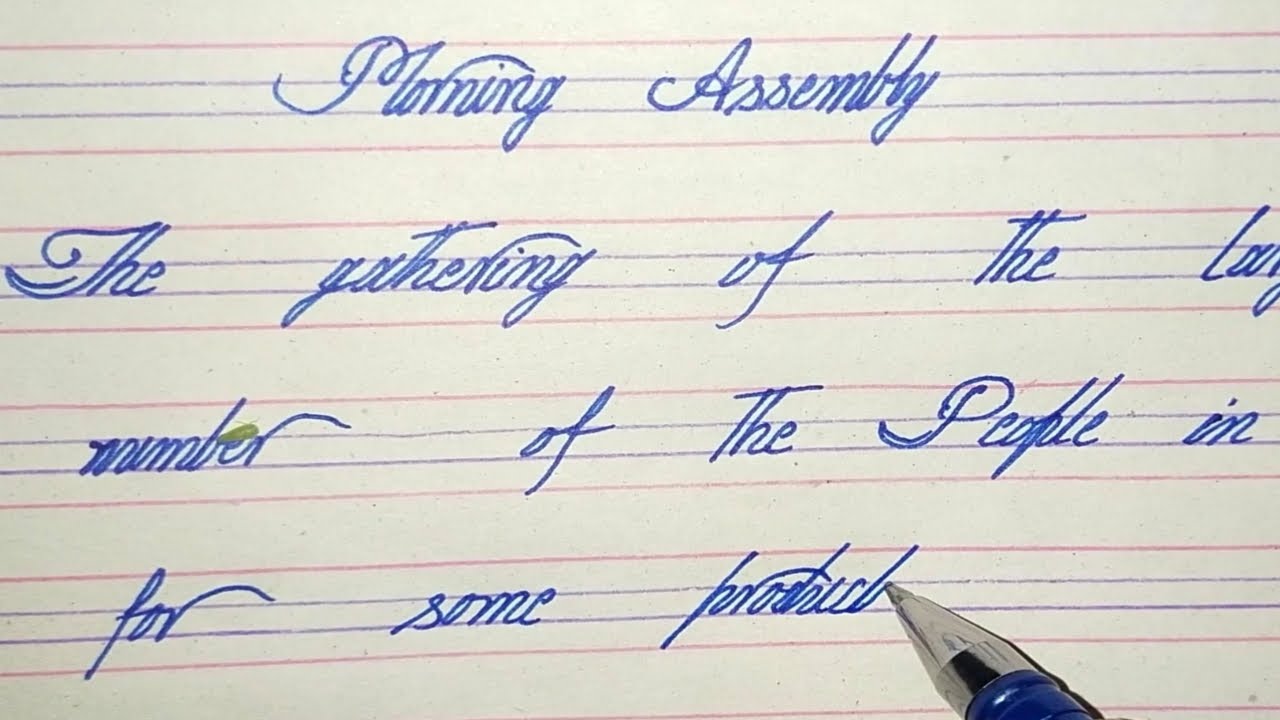 Morning Assembly
The gathering of the
number of the People in
for some